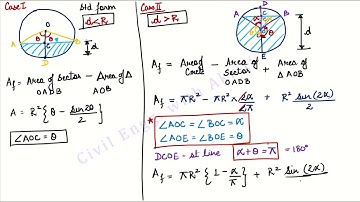 Case I
Std form
d<R
A
B
O
θ
θ
C
D
d
A_f = Area of Sector − Area of Δ
OADB AOB
A = R² { θ − sin2θ/2 }
∠AOC = θ
Case II
d > R
A
B
C
D
E
O
α
α
θ
d
A_f = Area of Circle − Area of Sector + Area of
OADB ΔAOB
A_f = πR² − πR² × 2α/2π + R² sin(2α)/2
* ∠AOC = ∠BOC = α
∠AOE = ∠BOE = θ
DCOE - st line α + θ = π = 180°
A_f = πR² { 1 − α/π } + R² sin(2α)
Civil Engineer